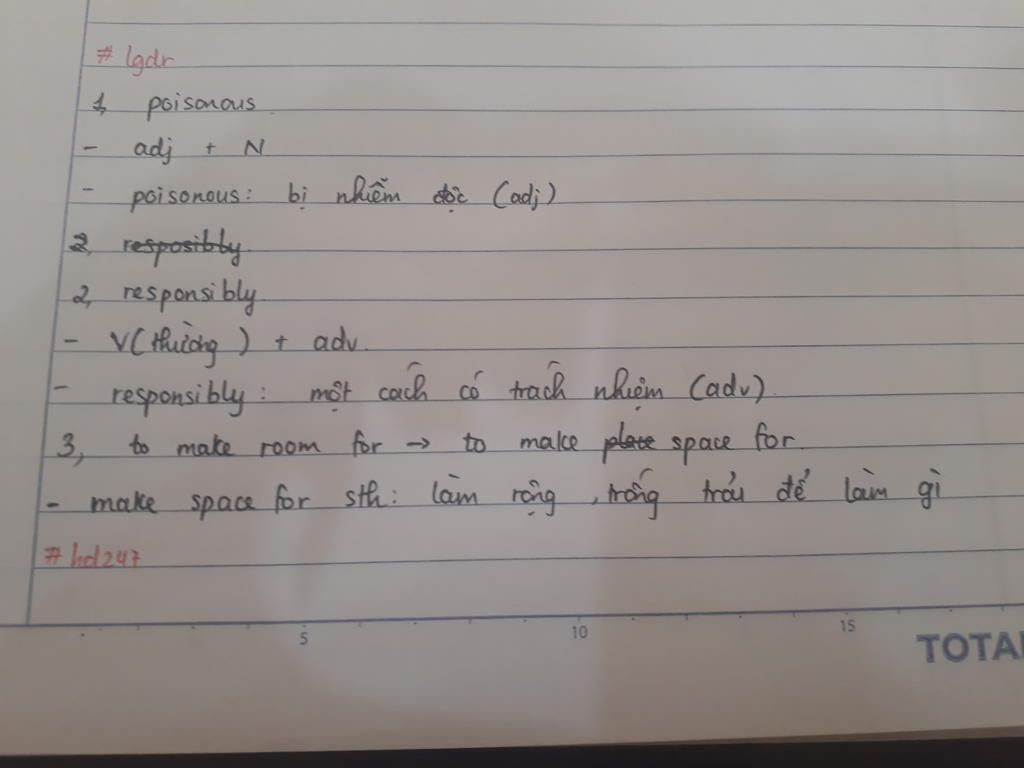 # lgdr
1, poisonous
- adj + N
- poisonous: bị nhiễm độc (adj)
2, resposibly
2, responsibly
- V(thường) + adv.
- responsibly: một cách có trách nhiệm (adv).
3, to make room for → to make place space for.
- make space for sth: làm rộng, trống trải để làm gì
# hd247
5 10 15
TOTAL